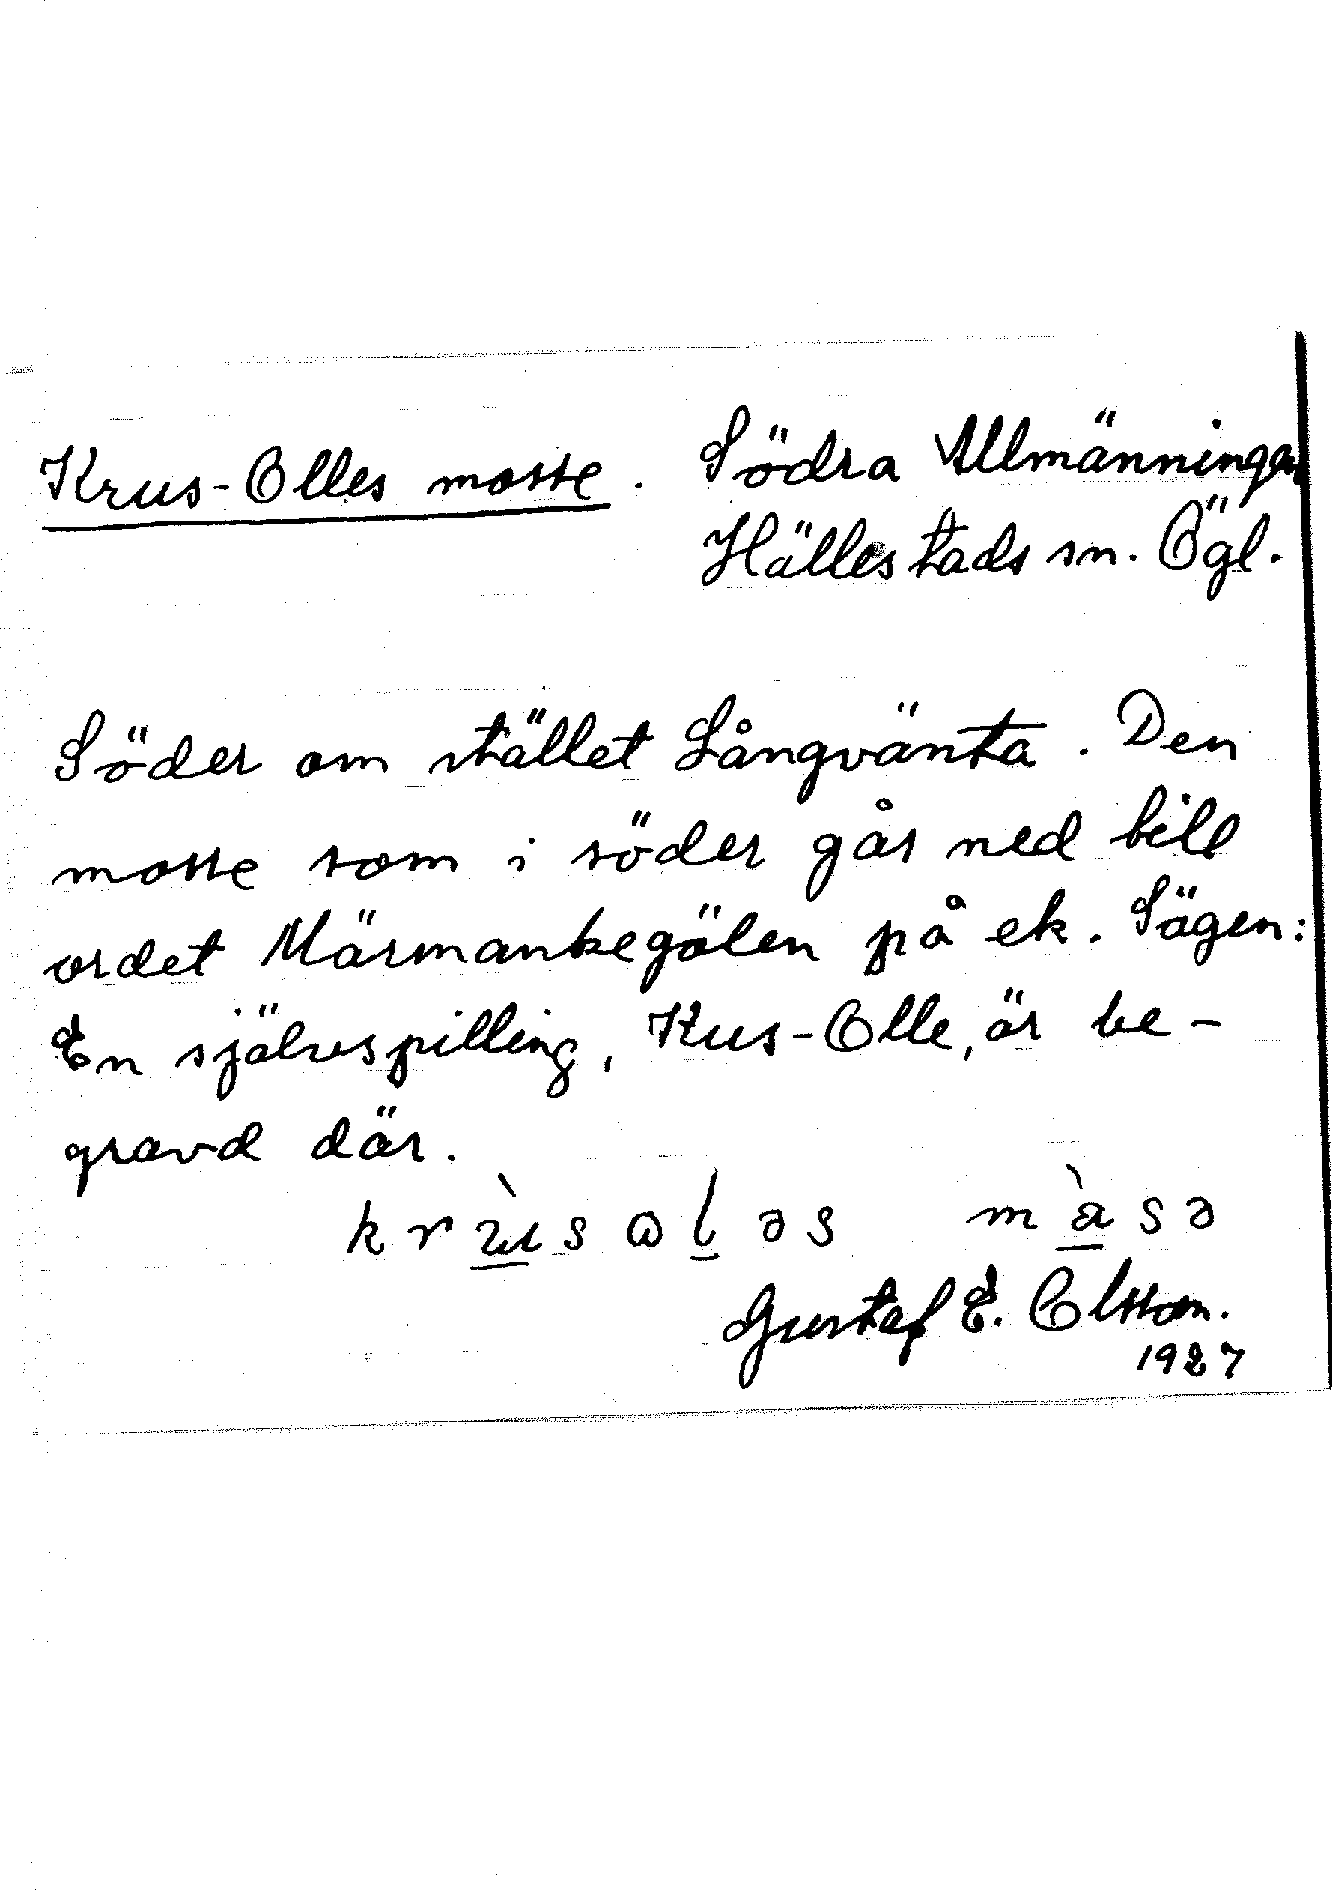 Krus-Olles mosse. Södra Allmänningen
Hällestads sn. Ögl.
Söder om stället Långvänta. Den
mosse som i söder går ned till
ordet Märmankegölen på ek. Sägen:
En självspilling, Krus-Olle, är be-
gravd där.
krùsaləs màsə
Gustaf E. Olsson.
1927